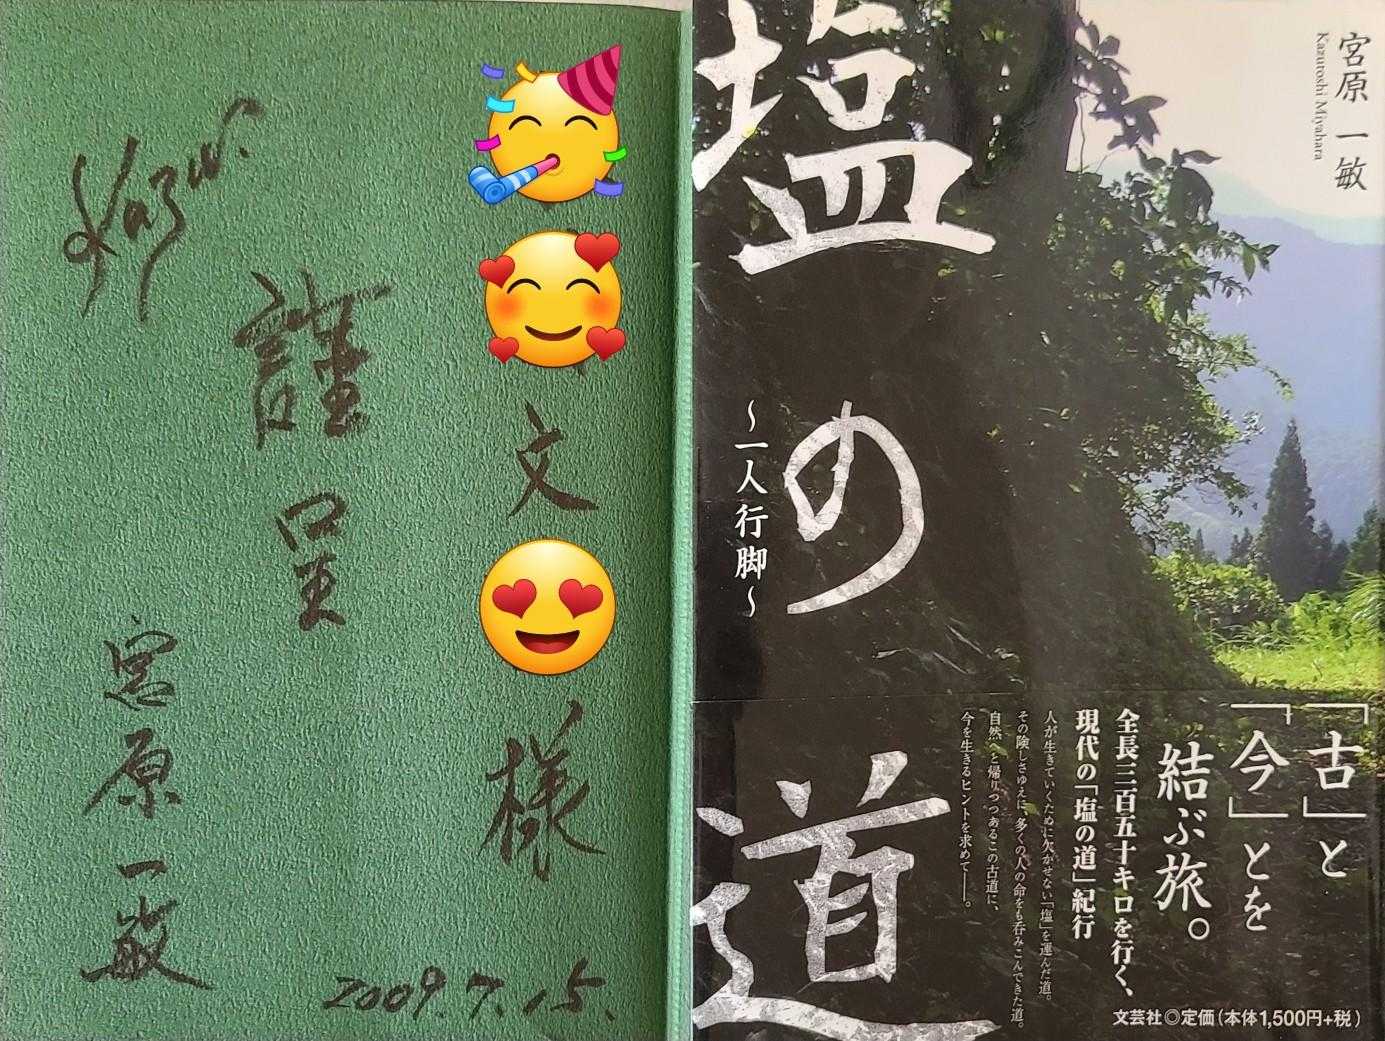 Kazu.
謹呈
文
様
宮原一敏
2009.7.15.
塩の道
～一人行脚～
宮原一敏
Kazutoshi Miyahara
「古」と
「今」とを
結ぶ旅。
全長三百五十キロを行く、
現代の「塩の道」紀行
人が生きていくために欠かせない「塩」を運んだ道。
その険しさゆえに、多くの人の命をも呑みこんできた道。
自然へと帰りつつあるこの古道に、
今を生きるヒントを求めて――。
文芸社◎定価(本体1,500円+税)